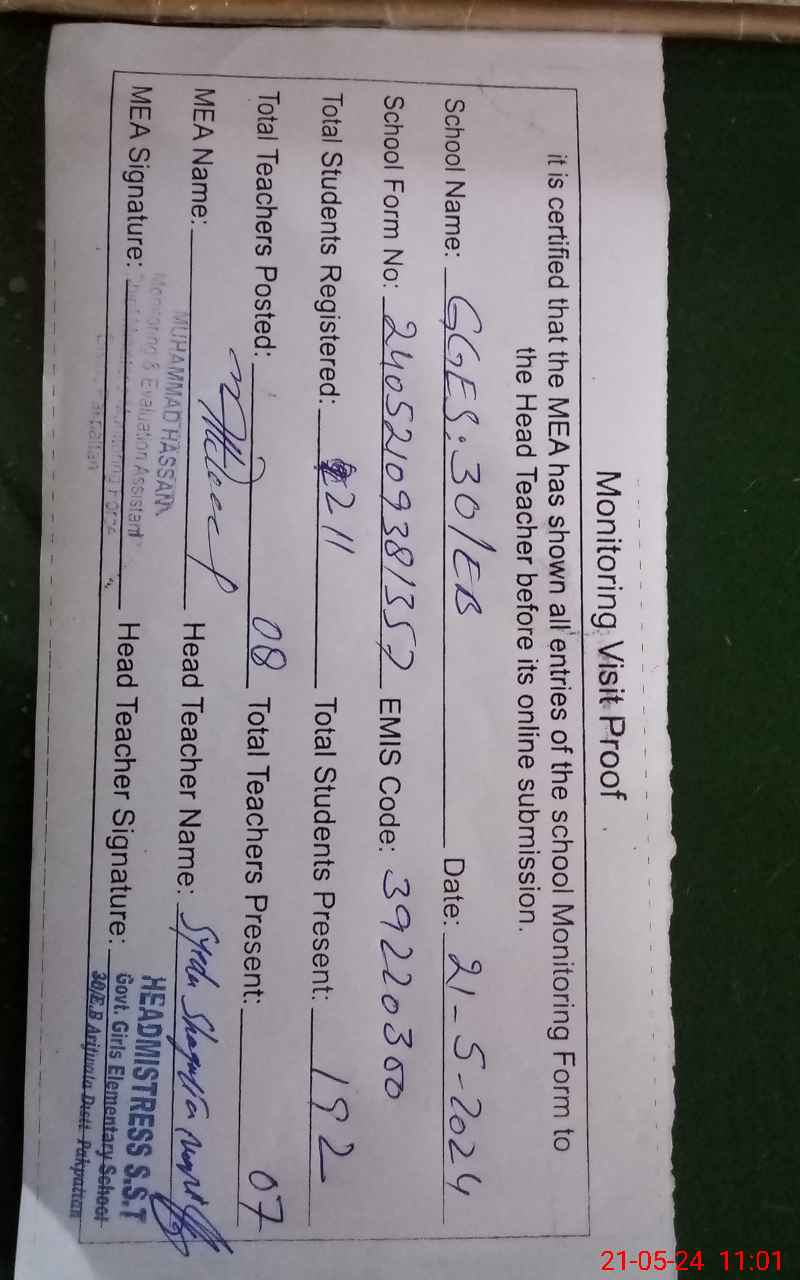 Monitoring Visit Proof
it is certified that the MEA has shown all entries of the school Monitoring Form to
the Head Teacher before its online submission.
School Name: GGES: 30/EB Date: 21-5-2024
School Form No: 240521093813 EMIS Code: 39220300
Total Students Registered: 211 Total Students Present: 192
Total Teachers Posted: 08 Total Teachers Present: 07
MEA Name: Head Teacher Name: Syeda Shagufta
MUHAMMAD HASSAN
Monitoring & Evaluation Assistant
MEA Signature: Head Teacher Signature:
Pakpattan
HEADMISTRESS S.S.T
Govt. Girls Elementary School
30/E.B Arifwala Distt. Pakpattan
21-05-24 11:01